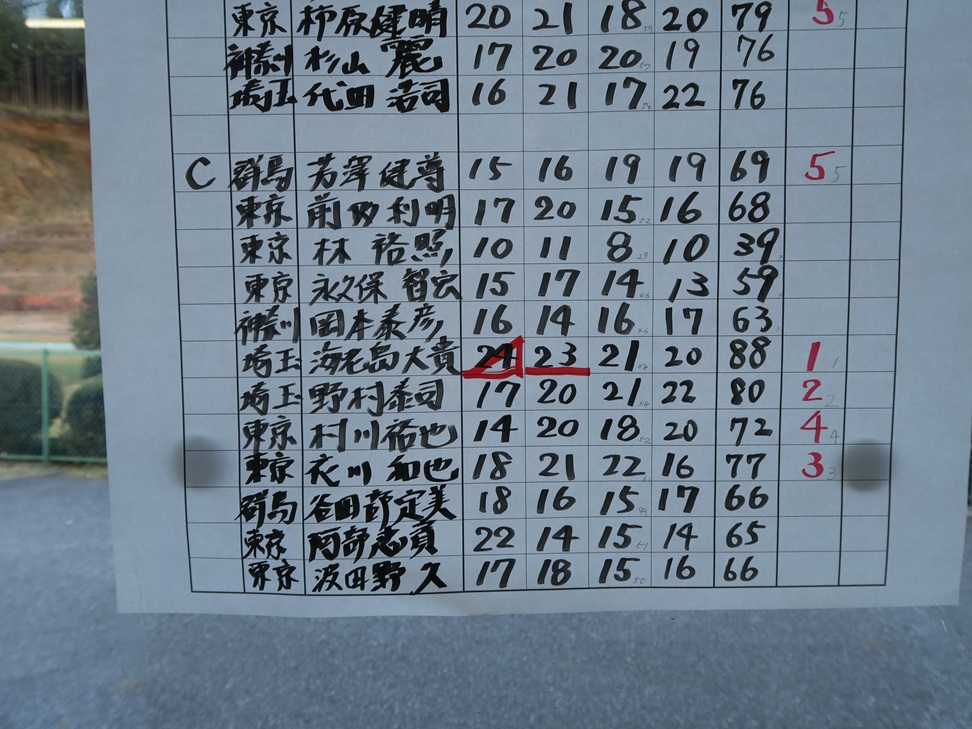 東京 柿原健晴 20 21 18 20 79 5 5
神奈川 杉山 麗 17 20 20 19 76
埼玉 代田 浩司 16 21 17 22 76
C 群馬 芳澤 健尊 15 16 19 19 69 5 5
東京 前 利明 17 20 15 16 68
東京 林 裕照 10 11 8 10 39
東京 永久保 智宏 15 17 14 13 59
神奈川 岡本泰彦 16 14 16 17 63
埼玉 海老島大貴 24 23 21 20 88 1
埼玉 野村泰司 17 20 21 22 80 2 2
東京 村川裕也 14 20 18 20 72 4 4
東京 衣川 和也 18 21 22 16 77 3 3
群馬 谷田部定美 18 16 15 17 66
東京 阿部志 22 14 15 14 65
東京 波田野 久 17 18 15 16 66